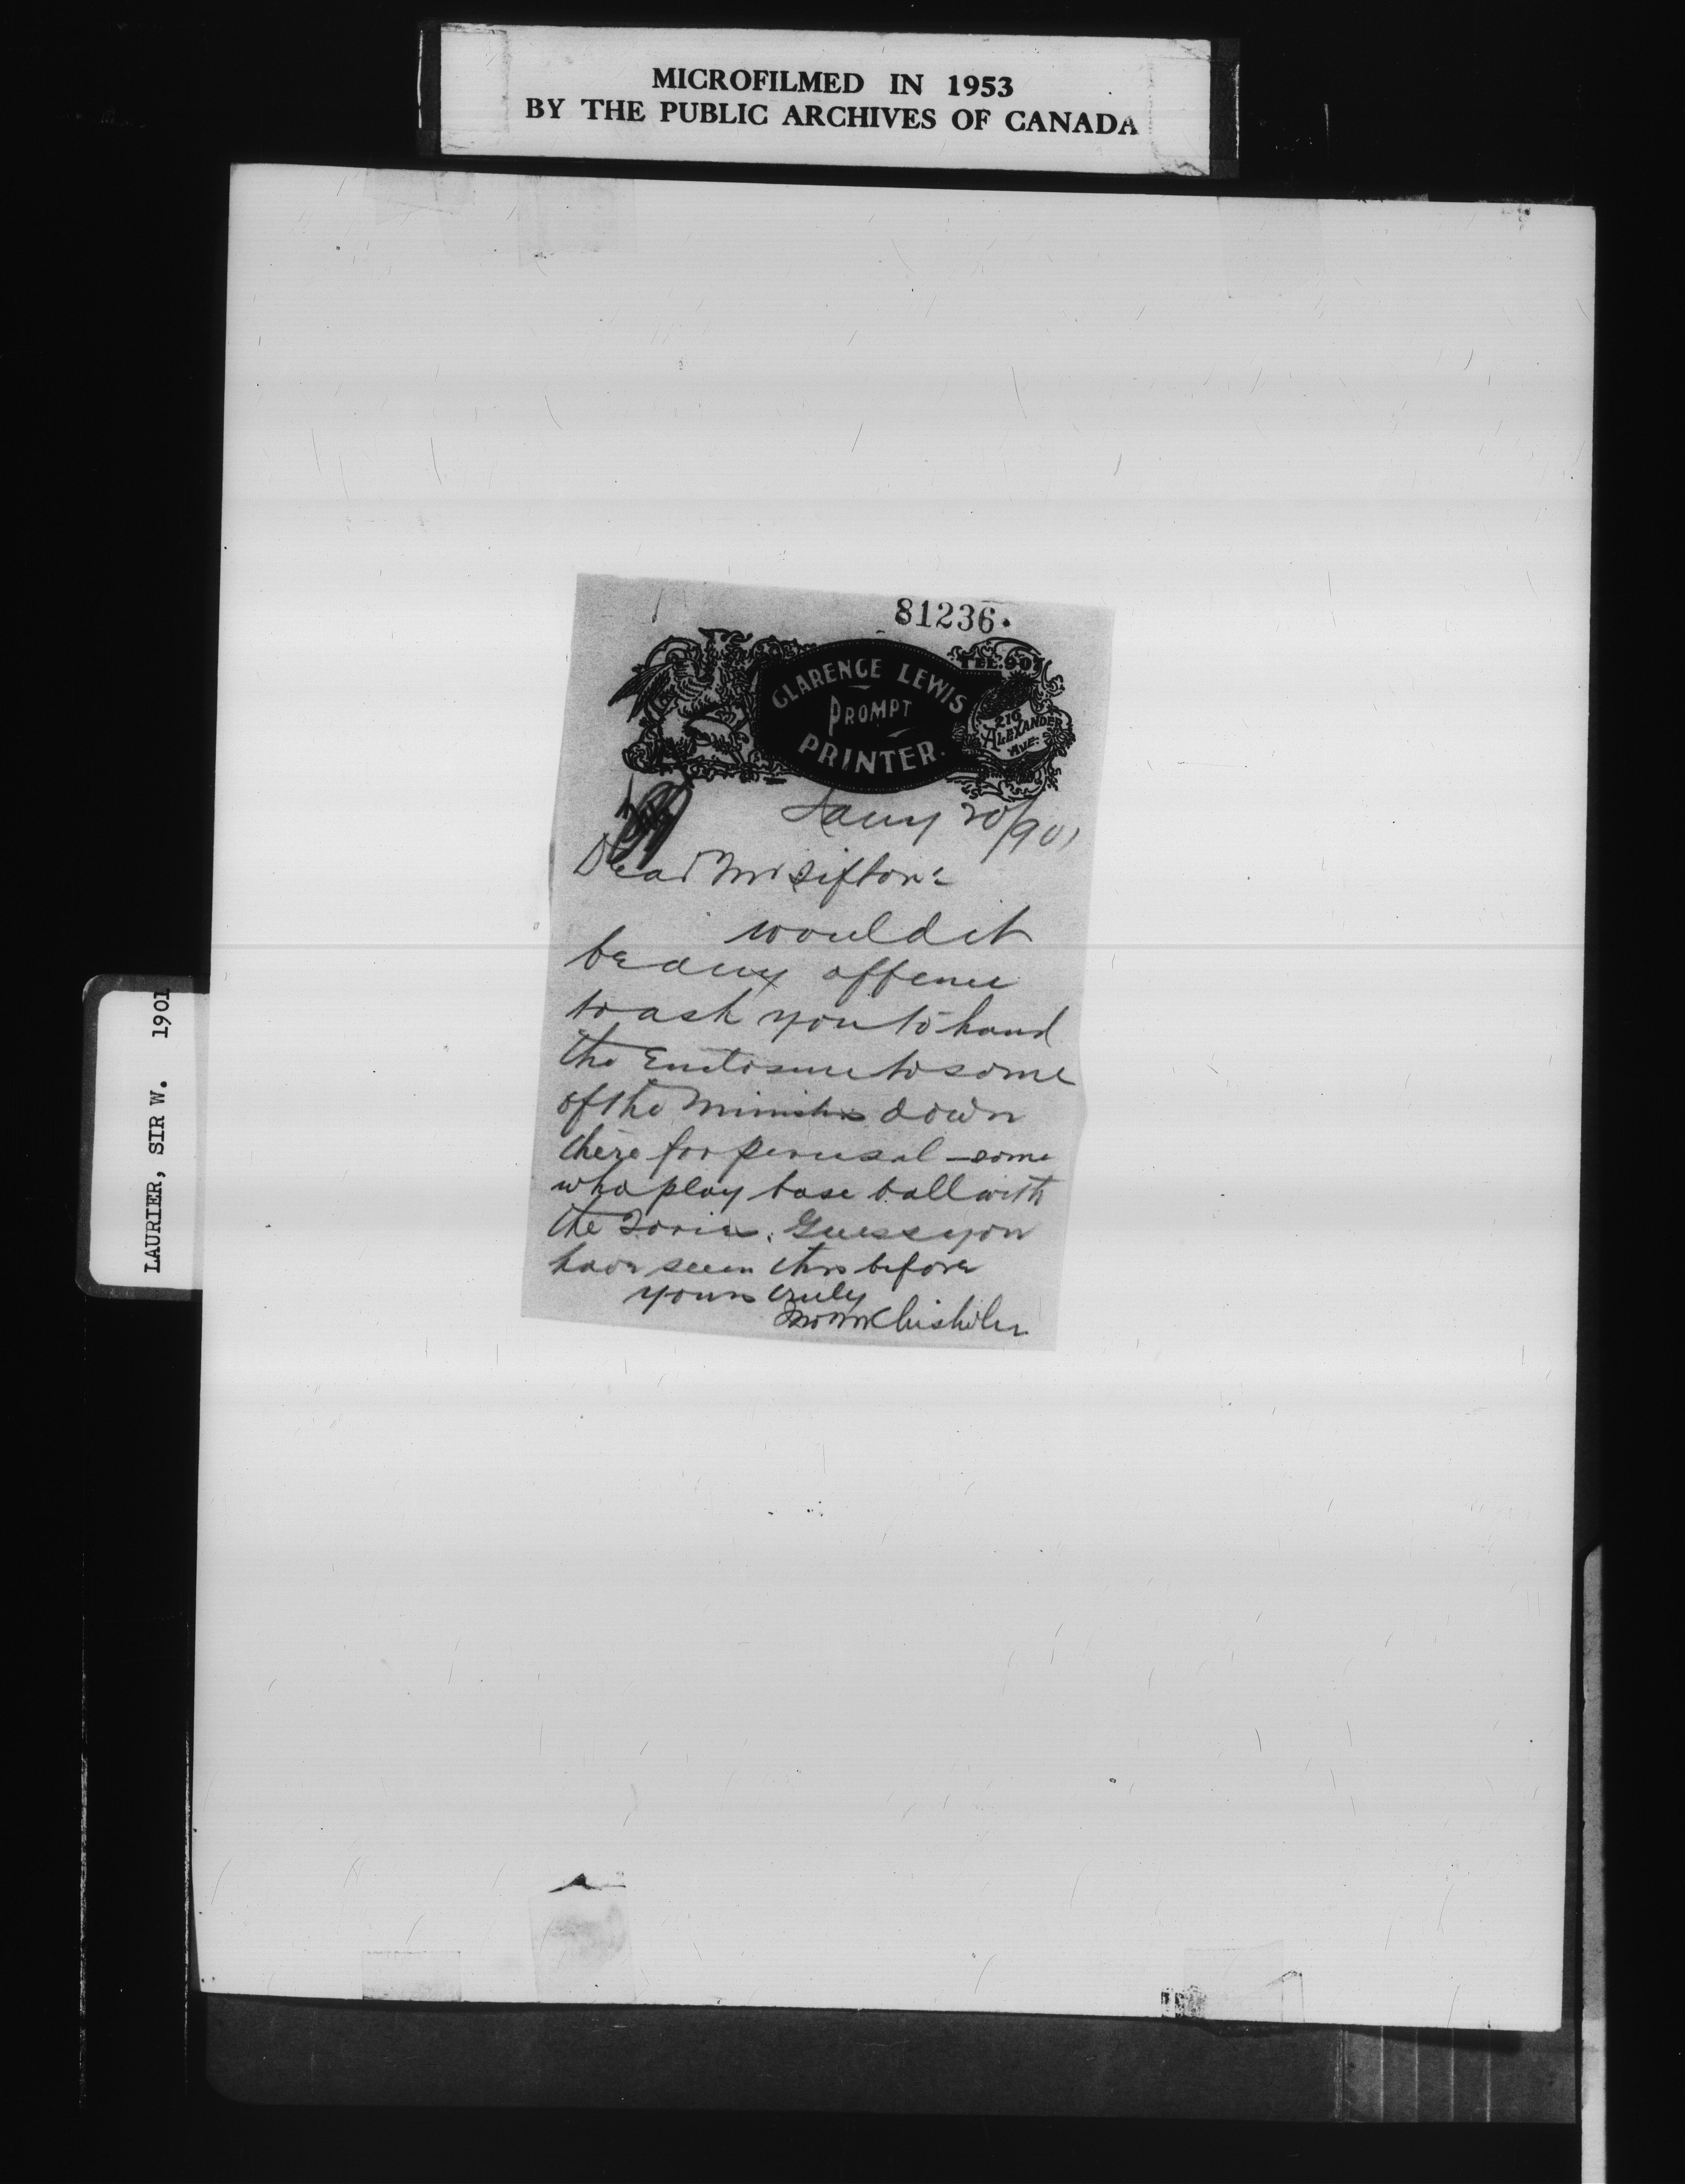 MICROFILMED IN 1953
BY THE PUBLIC ARCHIVES OF CANADA
LAURIER, SIR W. 1901
81236.
CLARENCE LEWIS
PROMPT
PRINTER.
TEL. 907
216
ALEXANDER
AVE.
Jany 20/901
Dear Mr Sifton:
would it
be any offence
to ask you to hand
the Enclosure to some
of the Ministers down
there for perusal - some
who play base ball with
the Tories. Guess you
have seen this before
yours truly
Chisholm